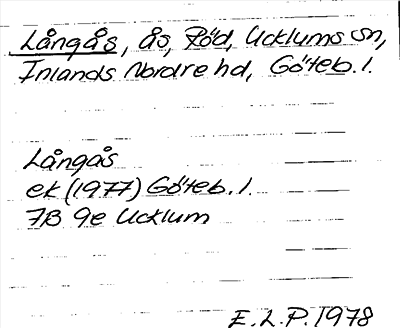 Långås, ås, Röd, Ucklums sn,
Inlands Nordre hd, Göteb. l.
Långås
ek (1977) Göteb. l.
7B 9e Ucklum
E.L.P. 1978